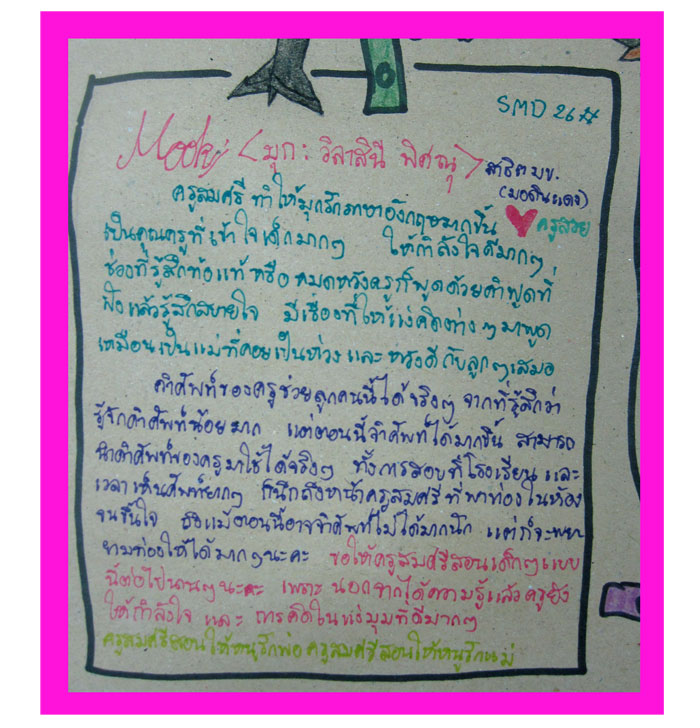 SMD 26
Mooky <มุก: วิลาสินี พิศณุ> สาธิต มข.
(มอดินแดง)
ครูสมศรี ทำให้มุกรักภาษาอังกฤษมากขึ้น ครูสวย
เป็นคุณครูที่เข้าใจเด็กมากๆ ให้กำลังใจดีมากๆ
ช่วงที่รู้สึกท้อแท้หรือ หมดหวังครูก็พูดด้วยคำพูดที่
ฟังแล้วรู้สึกสบายใจ มีเรื่องที่ให้แง่คิดต่างๆมาพูด
เหมือนเป็นแม่ที่คอยเป็นห่วง และ หวังดีกับลูกๆเสมอ
คำศัพท์ของครูช่วยลูกคนนี้ได้จริงๆ จากที่รู้สึกว่า
รู้จักคำศัพท์น้อยมาก แต่ตอนนี้จำศัพท์ได้มากขึ้น สามารถ
นำคำศัพท์ของครูมาใช้ได้จริงๆ ทั้งการสอบที่โรงเรียน และ
เวลาเห็นศัพท์ยากๆ ก็นึกถึงหน้าครูสมศรีที่พาท่องในห้อง
จนขึ้นใจ ถึงแม้ตอนนี้อาจจำศัพท์ไม่ได้มากนัก แต่ก็จะพยา
ยามท่องให้ได้มากๆนะคะ ขอให้ครูสมศรีสอนเด็กๆแบบ
นี้ต่อไปนานๆนะคะ เพราะ นอกจากได้ความรู้แล้วครูยัง
ให้กำลังใจ และ การคิดในแง่มุมที่ดีมากๆ
ครูสมศรีสอนให้หนูรักพ่อ ครูสมศรีสอนให้หนูรักแม่